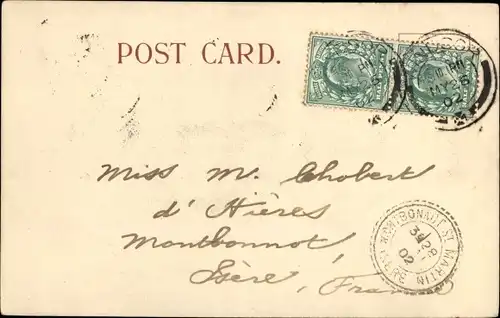 POST CARD.
MY 26
02
Miss M. Chobert
d'Hières
Montbonnot,
Isère, France
MONTBONNOT ST. MARTIN
ISÈRE
28
02